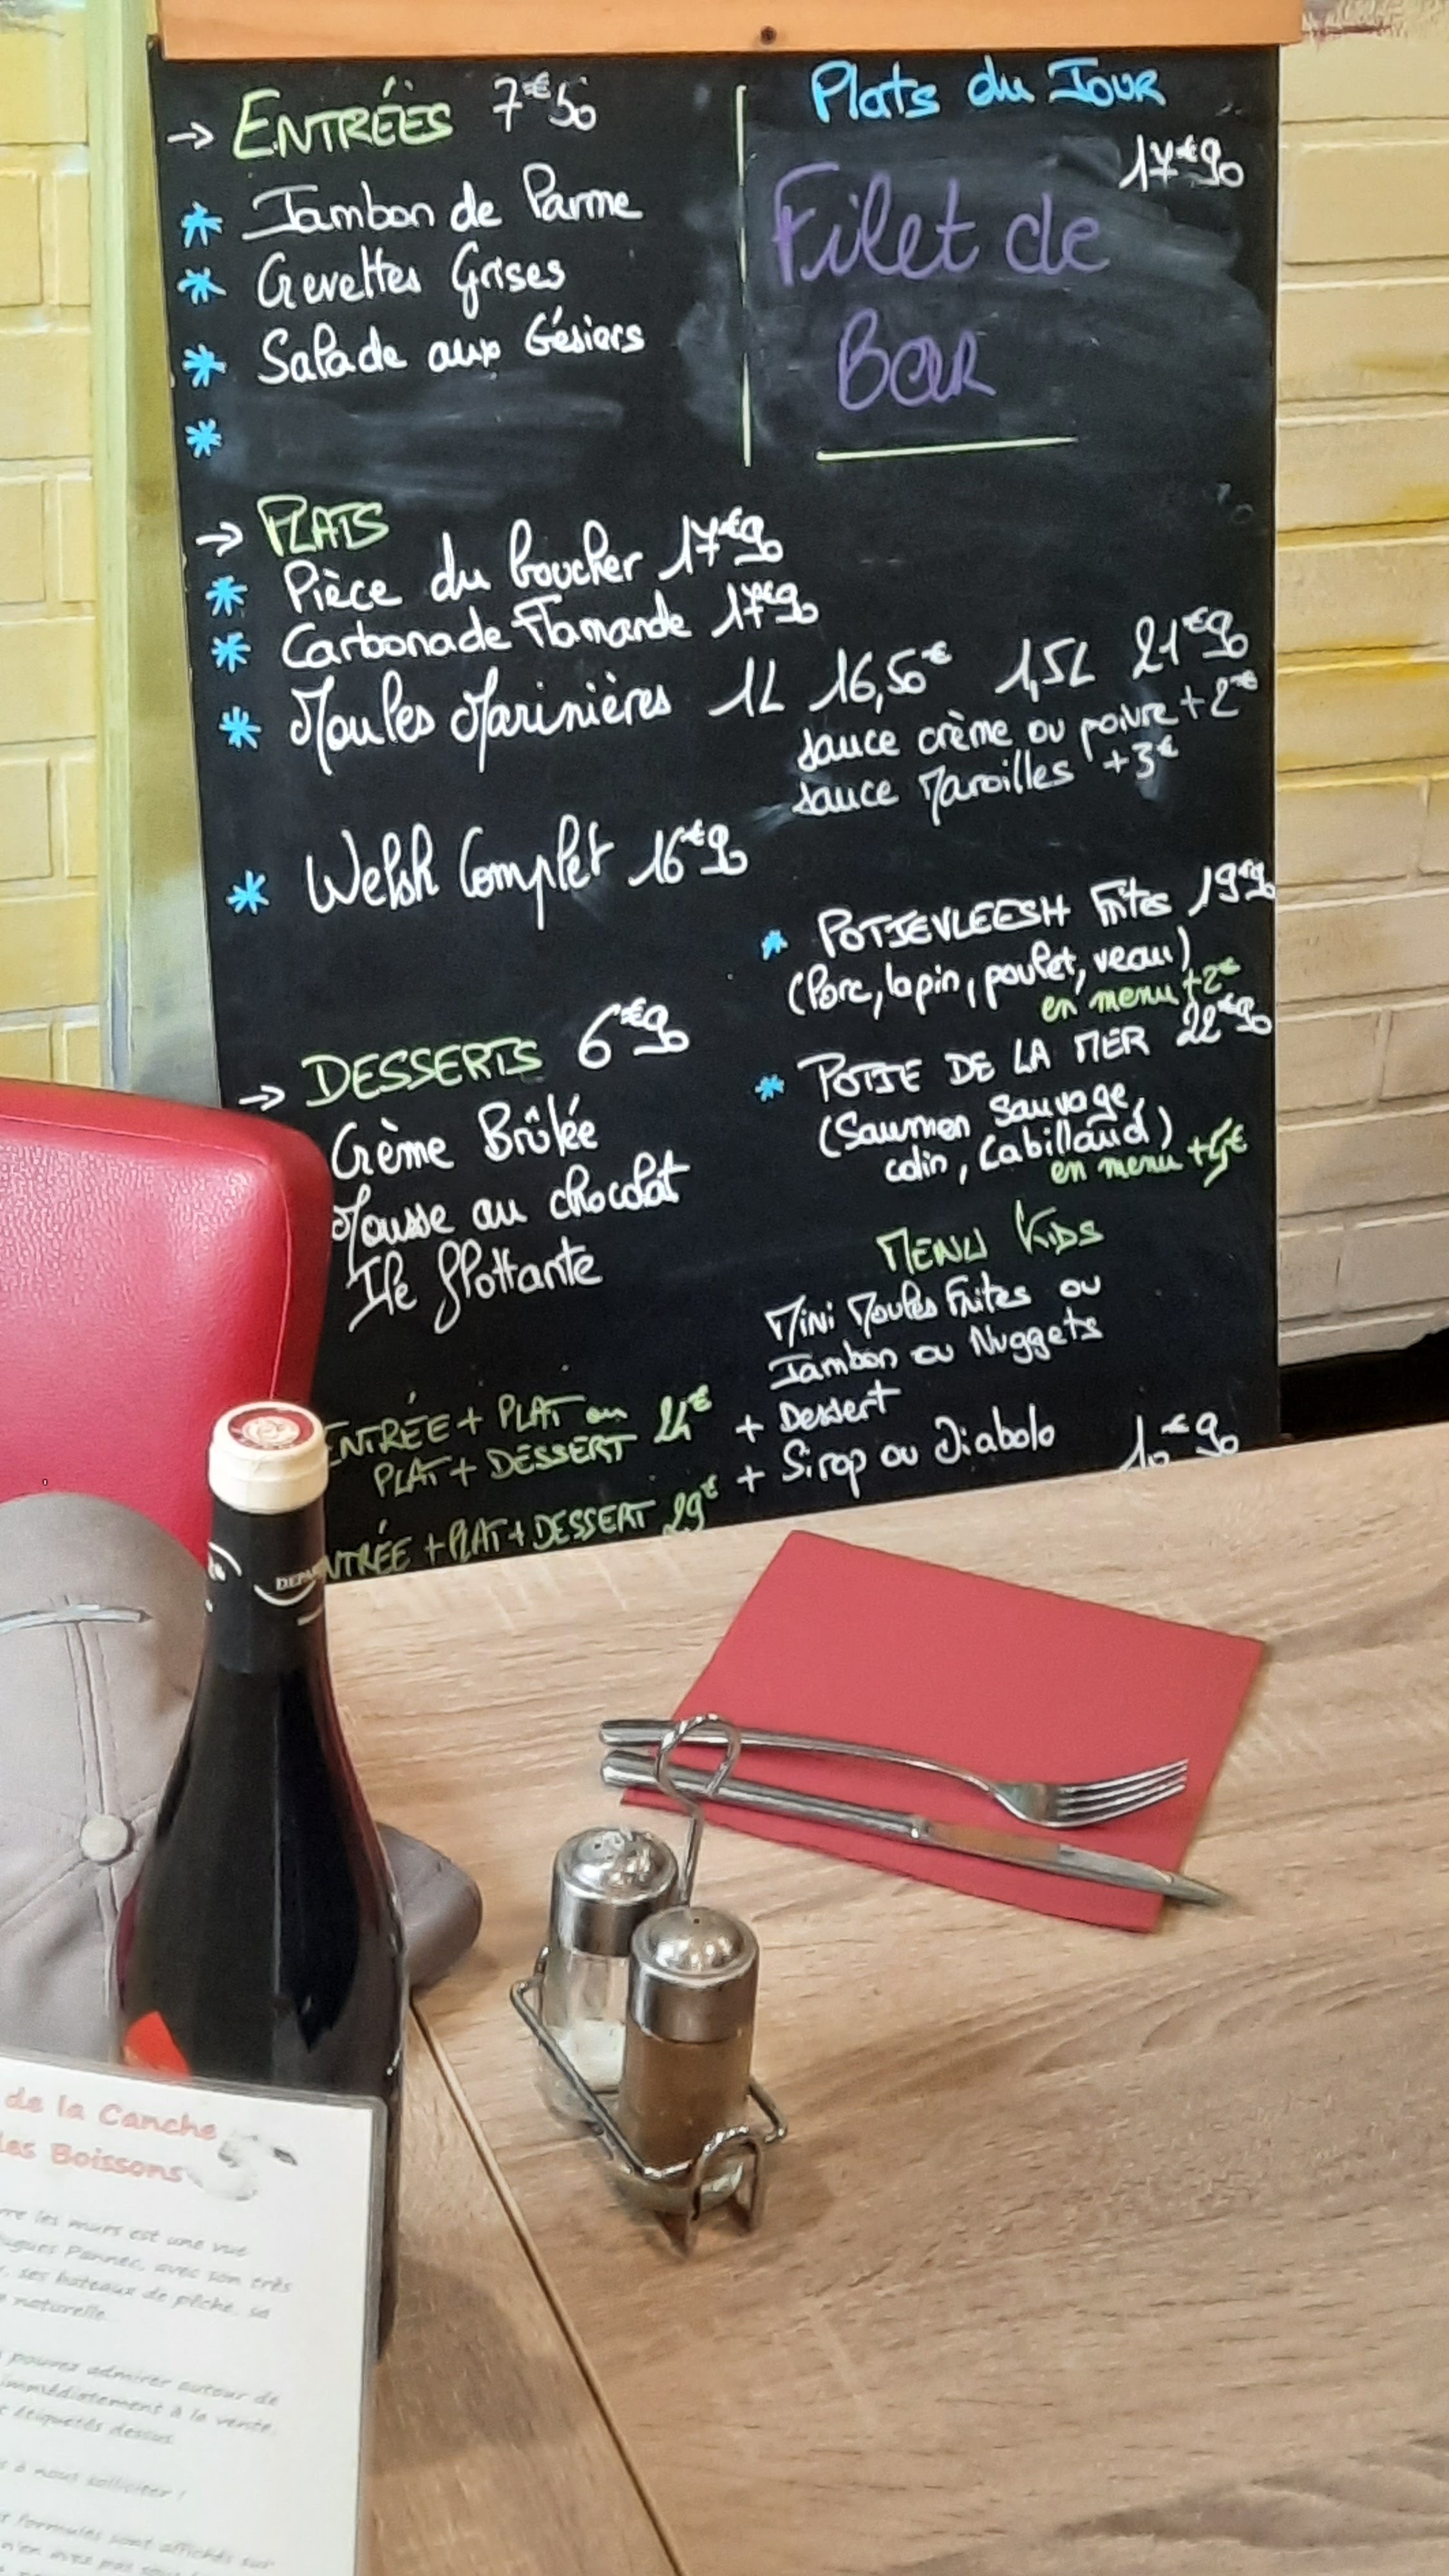 → ENTRÉES 7€50
* Jambon de Parme
* Crevettes Grises
* Salade aux Gésiers
*
Plats du Jour
17€90
Filet de
Bar
→ PLATS
* Pièce du boucher 17€90
* Carbonade Flamande 17€90
* Moules Marinières 1L 16,50€ 1,5L 21€90
sauce crème ou poivre +2€
sauce Maroilles +3€
* Welsh Complet 16€90
* POTJEVLEESH Frites 19€90
(Porc, lapin, poulet, veau)
en menu +2€
* POTJE DE LA MER 22€90
(Saumon Sauvage,
colin, Cabillaud)
en menu +5€
→ DESSERTS 6€90
Crème Brûlée
Mousse au chocolat
Ile flottante
MENU KIDS
Mini Moules Frites ou
Jambon ou Nuggets
+ Dessert
+ Sirop ou Diabolo 10€90
ENTRÉE + PLAT ou 24€
PLAT + DESSERT
NTRÉE + PLAT + DESSERT 29€
DEPA
de la Canche
les Boissons
les murs est une vue
Hugues Pannec, avec son très
ses bateaux de pêche, sa
naturelle
pouvez admirer autour de
immédiatement à la vente,
étiquetés dessus
à nous solliciter !
formules sont affichés sur
n'en avez pas sous